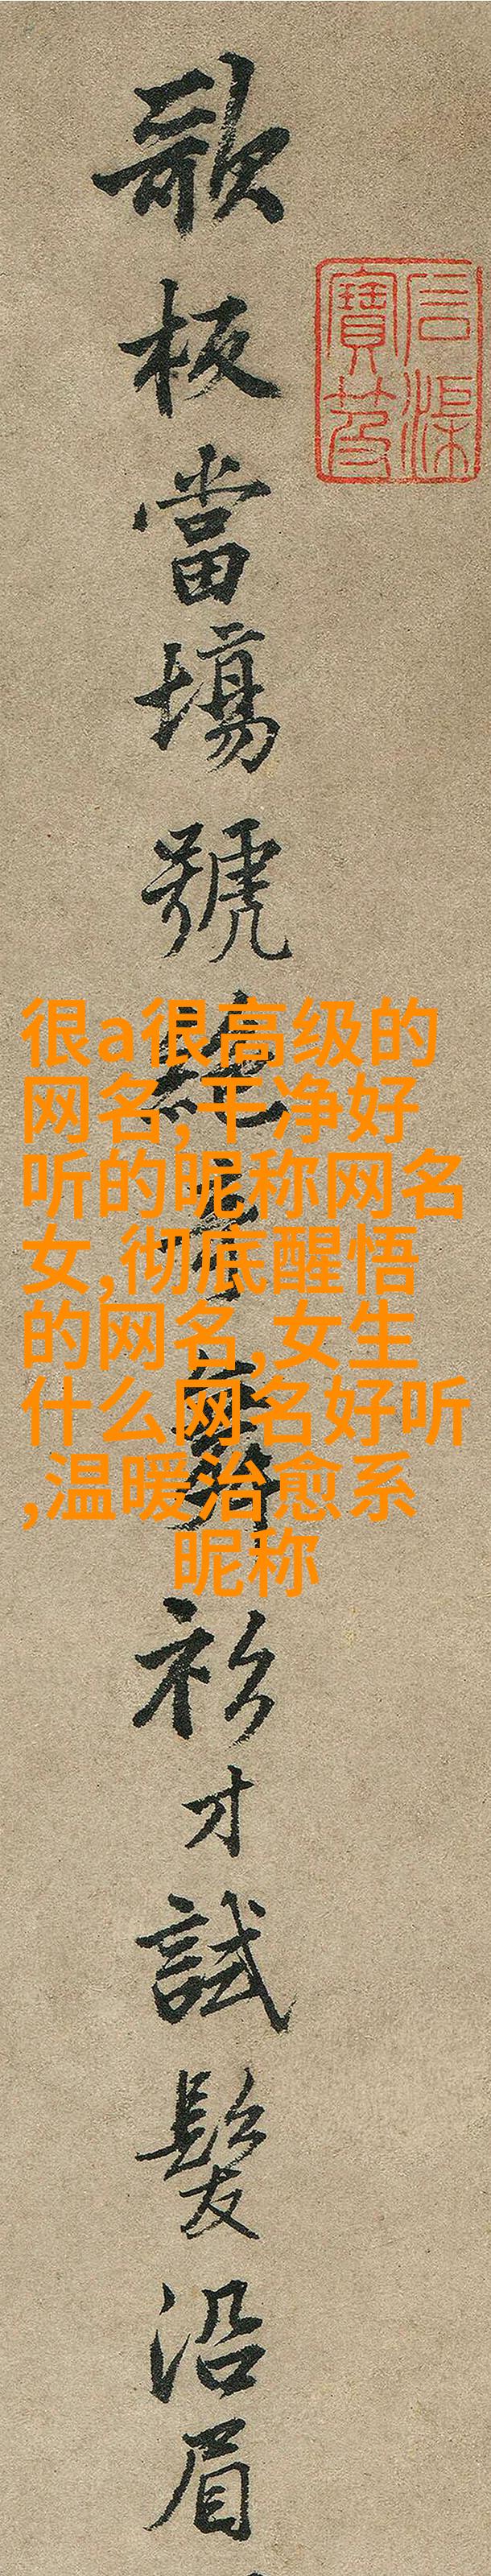 石渠
寶笈
歌板當場號絕奇舞衫才試髮沿眉
很a很高级的
网名,干净好
听的昵称网名
女,彻底醒悟
的网名,女生
什么网名好听
,温暖治愈系
昵称